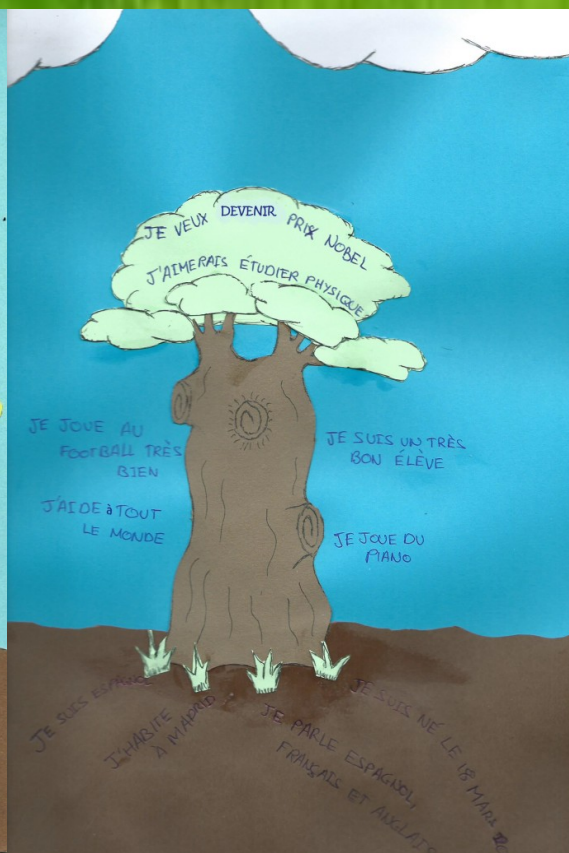 JE VEUX DEVENIR PRIX NOBEL
J'AIMERAIS ÉTUDIER PHYSIQUE
JE JOUE AU
FOOTBALL TRÈS
BIEN
J'AIDE à TOUT
LE MONDE
JE SUIS UN TRÈS
BON ÉLÈVE
JE JOUE DU
PIANO
JE SUIS ESPAGNOL
J'HABITE
À MADRID
JE PARLE ESPAGNOL,
FRANÇAIS ET ANGLAIS
JE SUIS NÉ LE 18 MARS